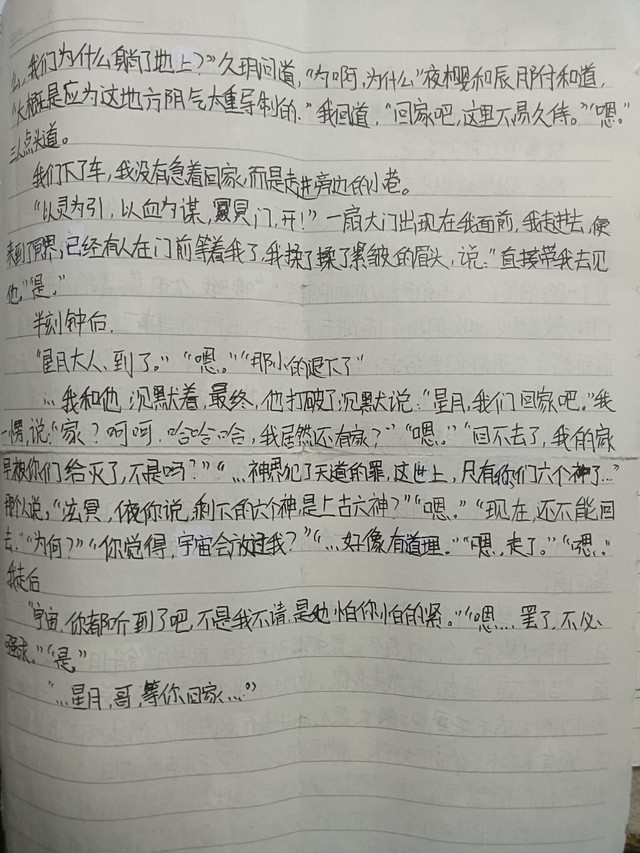 我们为什么躺了地上？”久玥问道，“为啊，为什么”夜樱和辰那付和道，
“大概是应为这地方阴气太重导制的.”我回道，“回家吧，这里不易久侍。”“嗯。”
三人点头道。
我们下了车，我没有急着回家，而是走进旁边的小巷。
“以灵为引，以血为谋，冥门，开！”一扇大门出现在我面前，我走进去，便
来到了冥界，已经有人在门前等着我了，我揉了揉了紧皱的眉头，说：“直接带我去见
他”“是。”
半刻钟后.
“星月大人、到了。”“嗯。”“那小的退下了”
… 我和他沉默着，最终，他打破了沉默说：“星月，我们回家吧。”我
一愣，说：“家？呵呵.哈哈哈，我居然还有家？”“嗯。”“回不去了，我的家
早被你们给灭了，不是吗？”“…神界犯了天道的罪，这世上，只有你们六个神了…”
那个人说，“泫冥，做你说，剩下的六个神是上古六神？”“嗯.”“现在，还不能回
去.”“为何？”“你觉得，宇宙会放过我？”“…好像有道理.”“嗯，走了。”“嗯.”
我走后
“宇宙，你都听到了吧，不是我不请，是她怕你怕的紧。”“嗯… 罢了，不必
强求.”“是”
“…星月，哥，等你回家…”